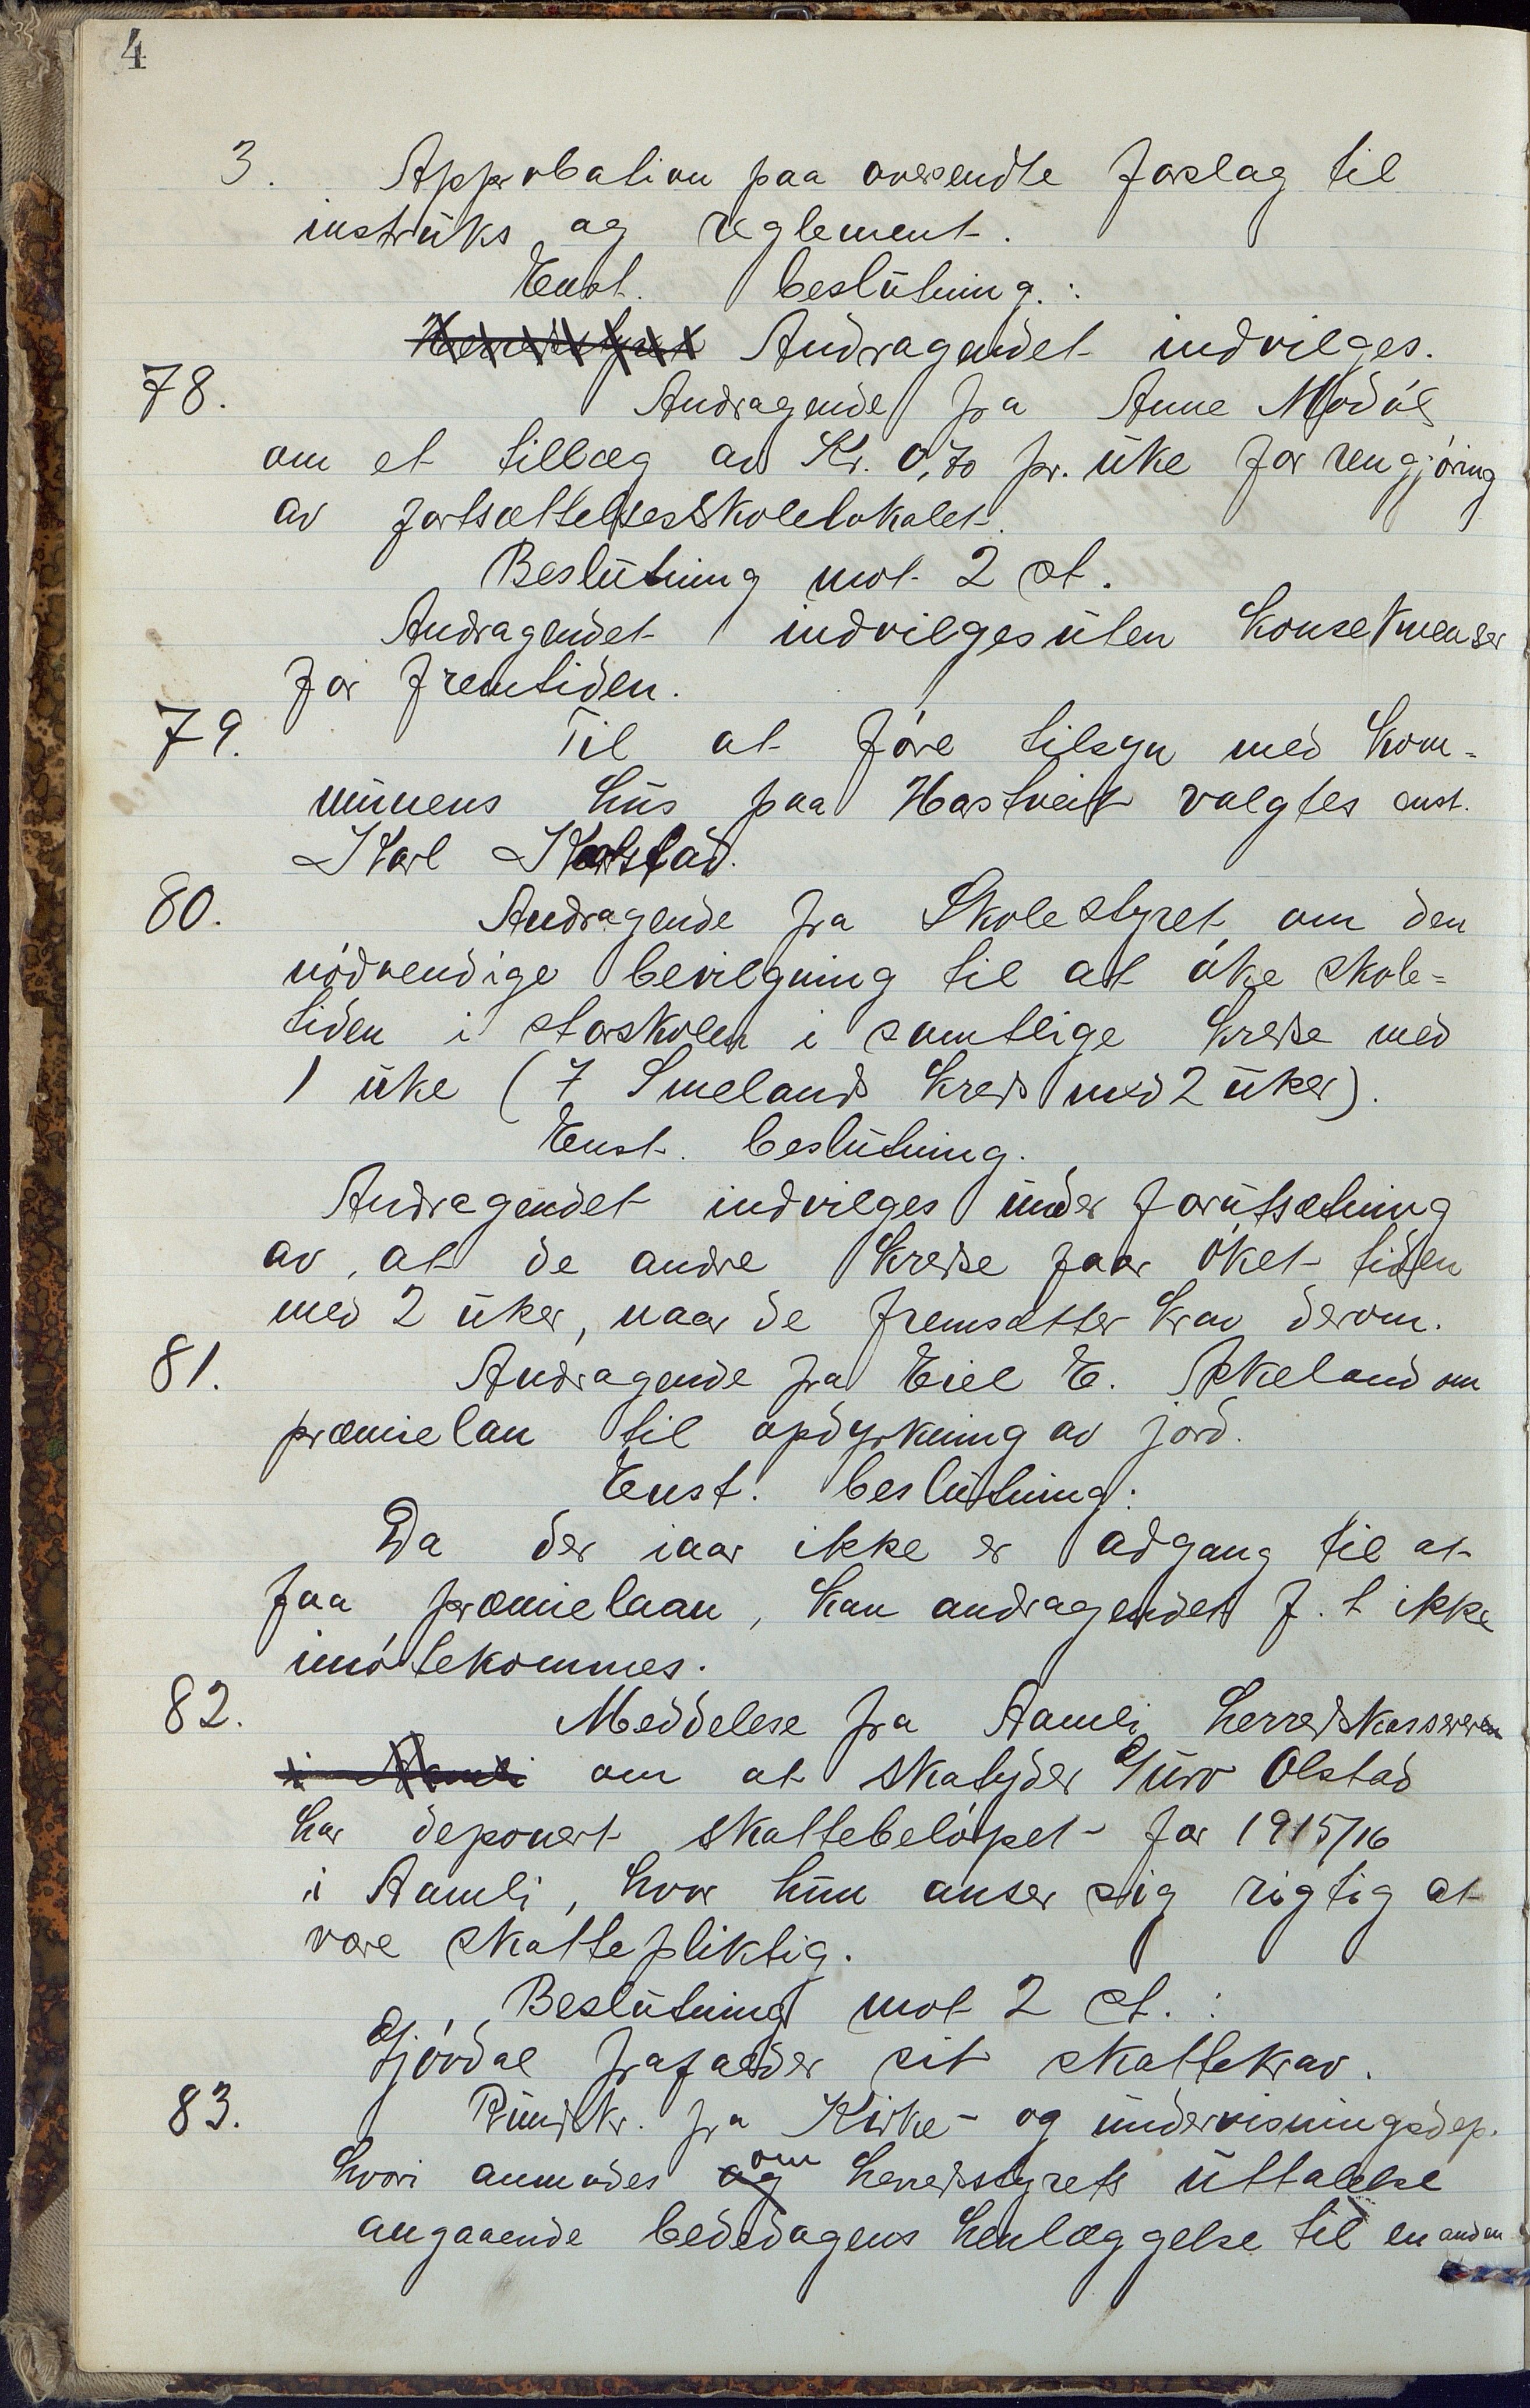 4
3. Approbation paa oversendte forslag til
instruks og reglement.
Enst. beslutning.:
Andragendet indvilges.
78. Andragende fra Anne Mödöl
om et tillæg av Kr. 0,70 pr. uke for rengjöring
av fortsættelsesskolelokalet.
Beslutning mot 2 st.
Andragendet indvilges uten konsekvenser
for fremtiden.
79. Til at före tilsyn med kom=
munens hus paa Hastveit valgtes enst.
Karl Karlstad.
80. Andragende fra Skolestyret om den
nödvendige bevilgning til at öke skole=
tiden i storskolen i samtlige kredse med
1 uke (7 Smelands kreds med 2 uker).
Enst. beslutning.
Andragendet indvilges under forutsætning
av, at de andre kredse faar öket tiden
med 2 uker, naar de fremsætter krav derom.
81. Andragende fra Eiel E. Askeland om
præmielan til opdyrkning av jord.
Enst. beslutning:
Da der iaar ikke er adgang til at
faa præmielaan, kan andragendet f. t ikke
imötekommes.
82. Meddelese fra Aamli herredskasserer
i Aamli om at skatyder Guro Olstad
har deponert skattebelöpet for 1915/16
i Aamli, hvor hun anser sig rigtig at
være skattepliktig.
Beslutning mot 2 st.:
Gjövdal frafalder sit skattekrav.
83. Rundskr. fra Kirke- og undervisningsdep.
hvori anmodes og om herredsstyrets uttalelse
angaaende bededagens henlæggelse til en anden